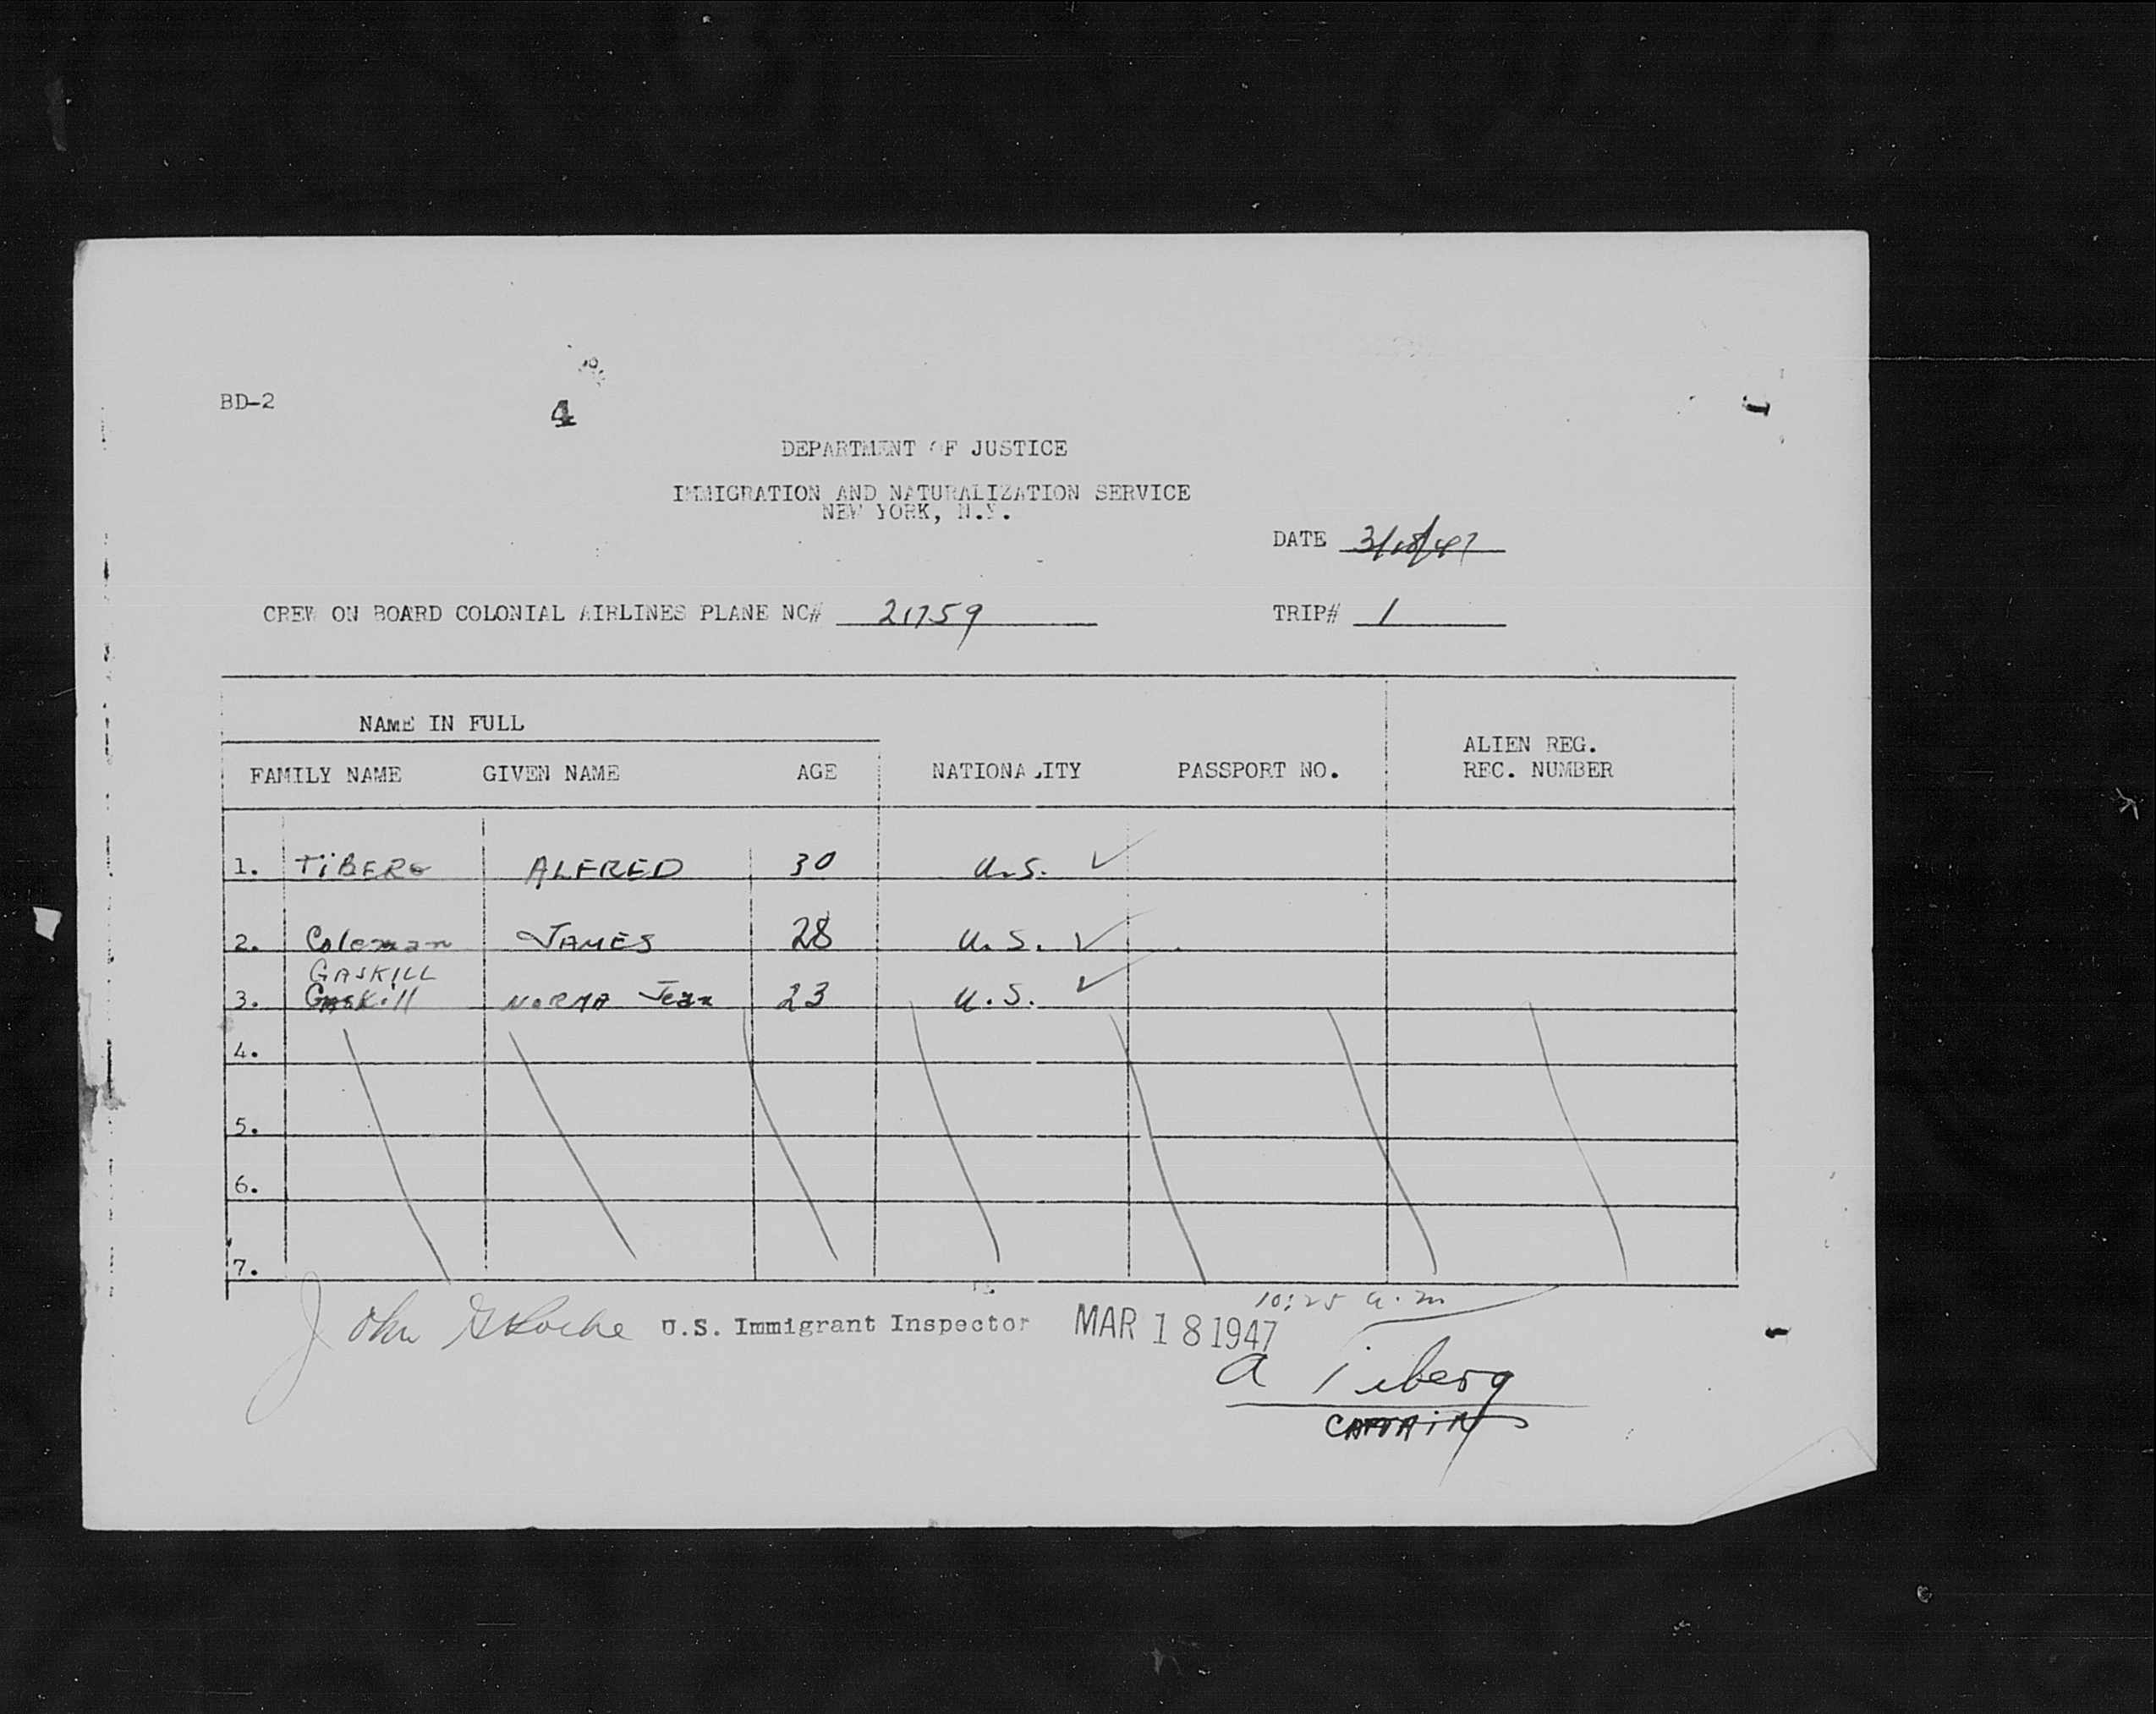 BD-2
4
DEPARTMENT OF JUSTICE
IMMIGRATION AND NATURALIZATION SERVICE
NEW YORK, N.Y.
DATE 3/18/47
CREW ON BOARD COLONIAL AIRLINES PLANE NC# 21759 TRIP# 1
NAME IN FULL
ALIEN REG.
FAMILY NAME GIVEN NAME AGE NATIONALITY PASSPORT NO. REC. NUMBER
1. TiBERG ALFRED 30 U.S. ✓
2. Coleman JAMES 28 U.S. ✓
GASKILL
3. Gaskill NORMA Jean 23 U.S. ✓
4.
5.
6.
7.
10:25 a.m
John U.S. Immigrant Inspector MAR 18 1947
A Tiberg
CAPTAIN